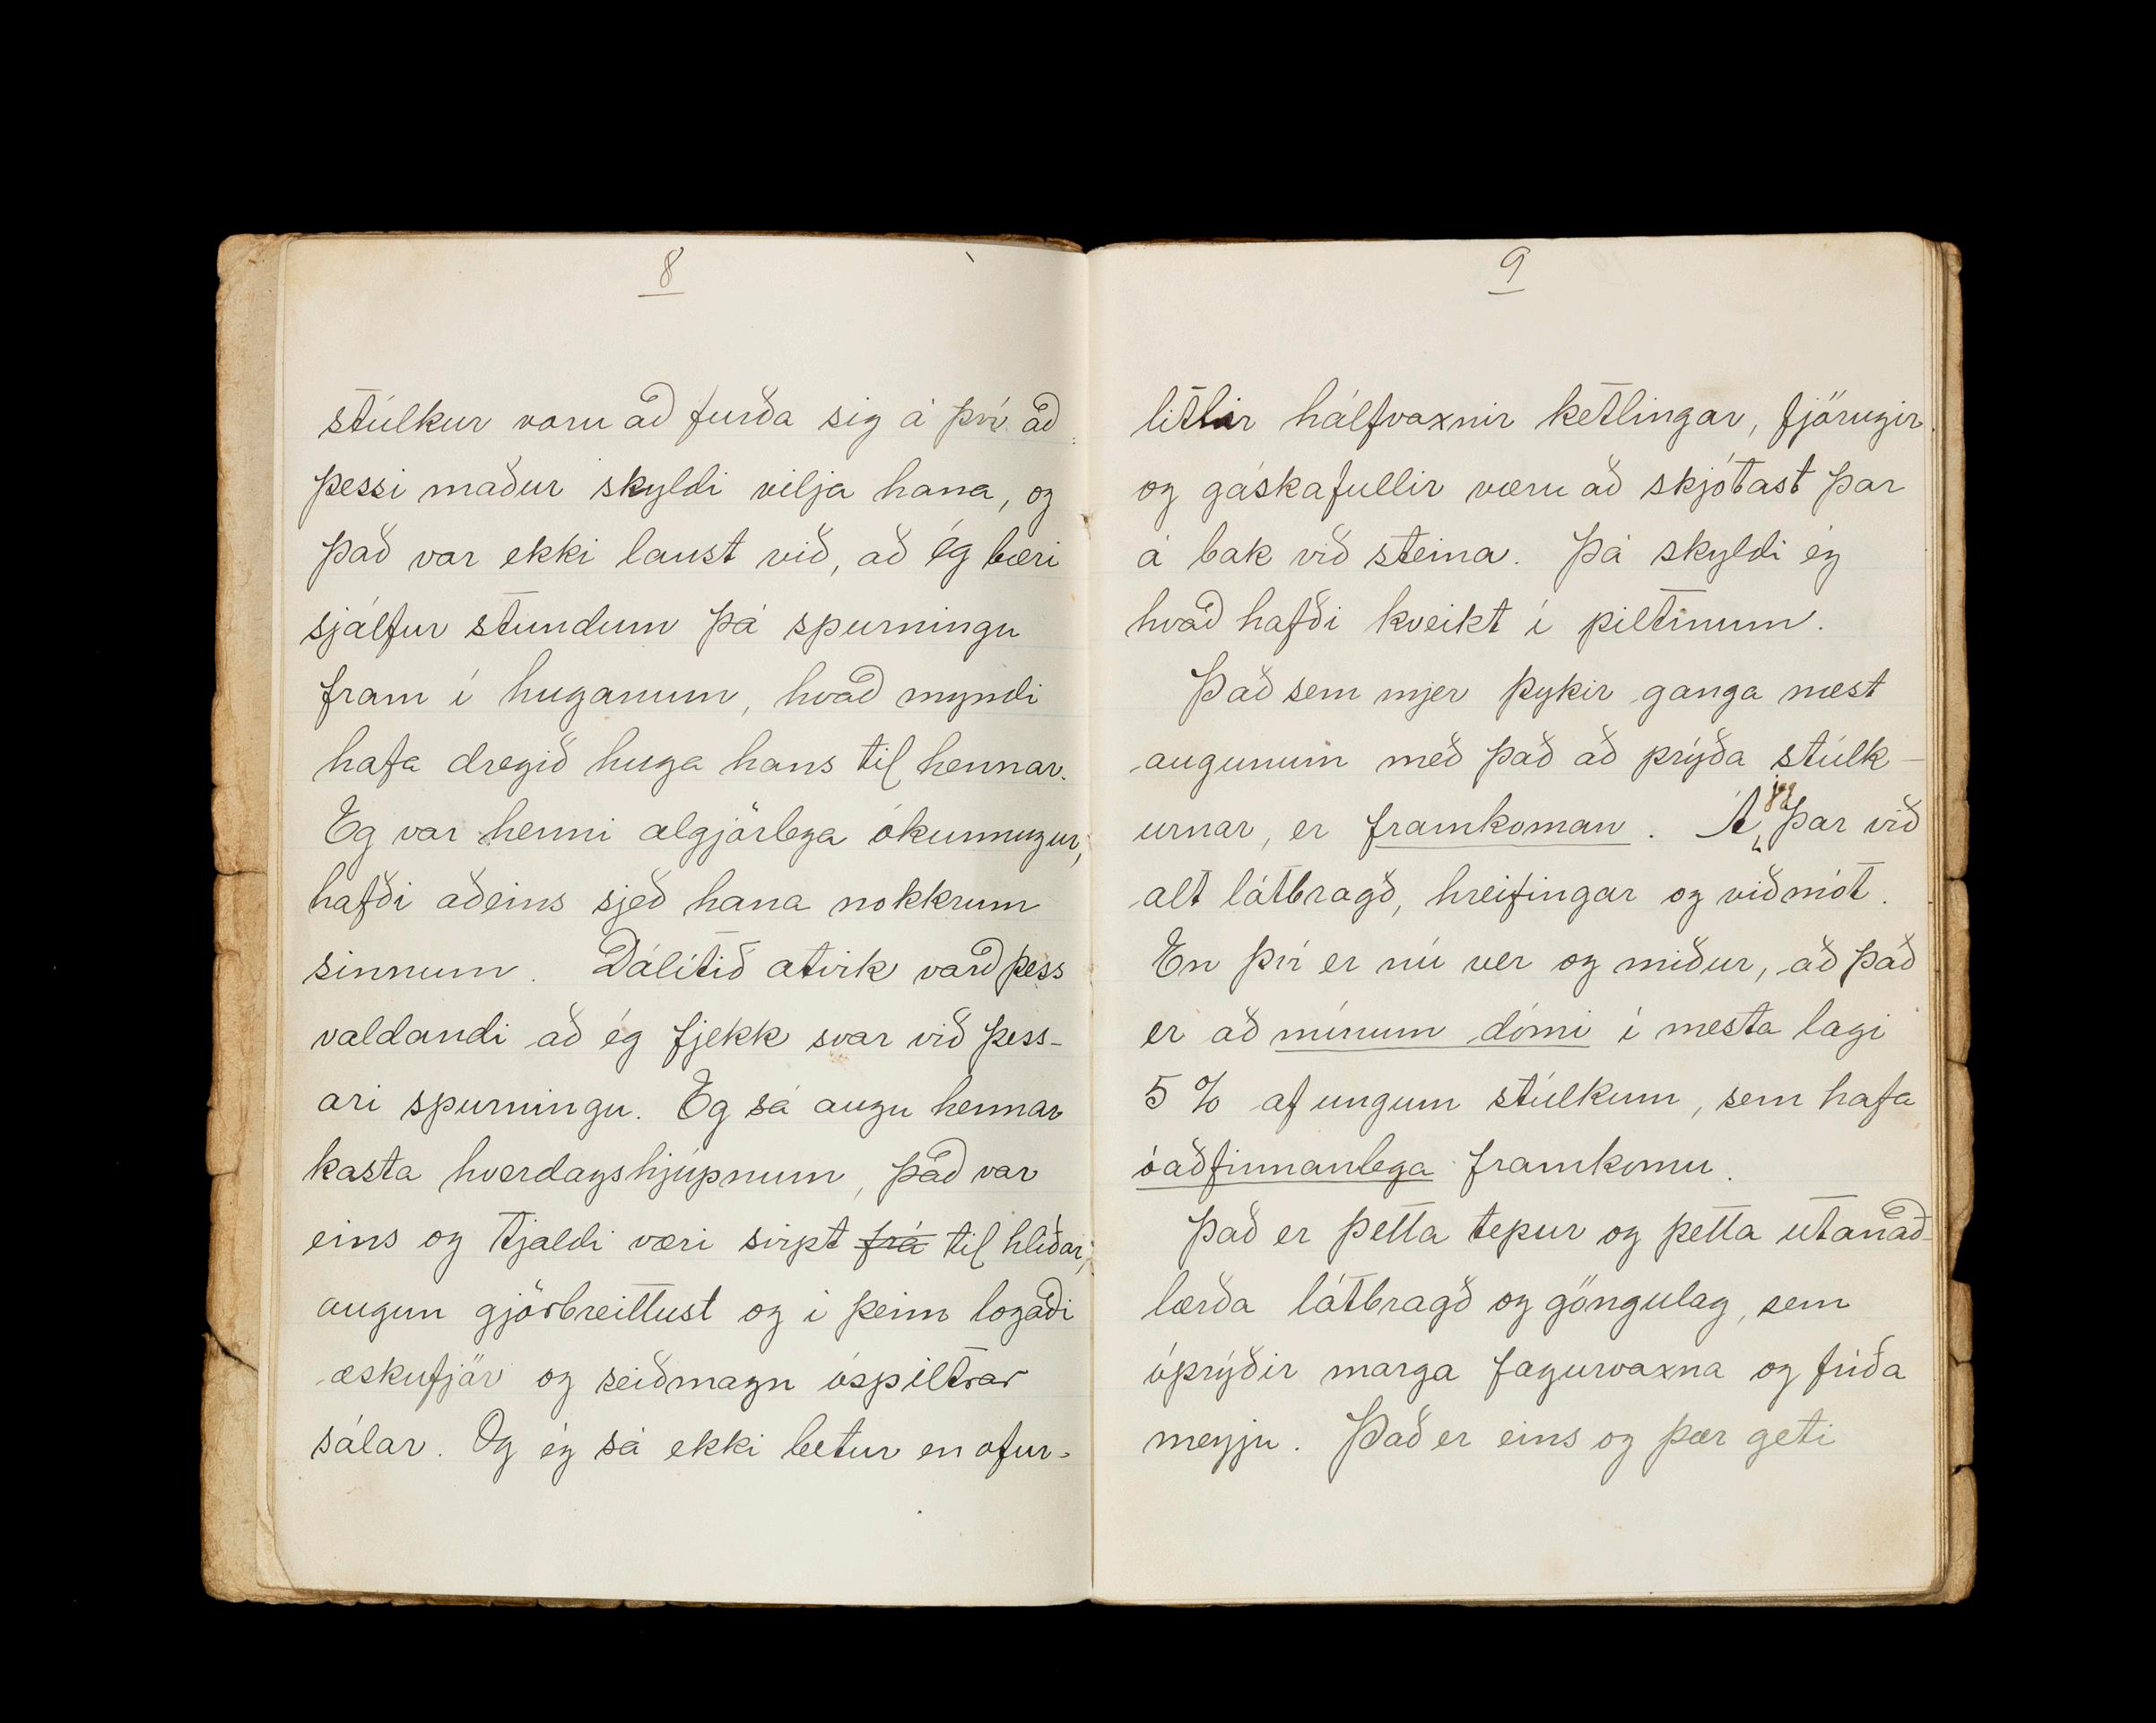 8
stúlkur voru að furða sig á því að
þessi maður skyldi vilja hana, og
það var ekki laust við, að ég bæri
sjálfur stundum þá spurningu
fram í huganum, hvað myndi
hafa dregið huga hans til hennar.
Eg var henni algjörlega ókunnugur,
hafði aðeins sjeð hana nokkrum
sinnum. Dálítið atvik varð þess
valdandi að ég fjekk svar við þess-
ari spurningu. Eg sá augu hennar
kasta hverdagshjúpnum, það var
eins og tjaldi væri svipt frá til hliðar,
augun gjörbreittust og í þeim logaði
æskufjör og seiðmagn óspiltrar
sálar. Og ég sá ekki betur en ofur-
9
litlir hálfvaxnir ketlingar, fjörugir
og gáskafullir væru að skjótast þar
á bak við steina. Þá skyldi ég
hvað hafði kveikt í piltinum.
Það sem mjer þykir ganga næst
augunum með það að prýða stúlk-
urnar, er framkoman. Á jeg þar við
alt látbragð, hreifingar og viðmót.
En því er nú ver og miður, að það
er að mínum dómi í mesta lagi
5 % af ungum stúlkum, sem hafa
óaðfinnanlega framkomu.
Það er þetta tepur og þetta utanað-
lærða látbragð og göngulag, sem
óprýðir marga fagurvaxna og fríða
meyju. Það er eins og þær geti